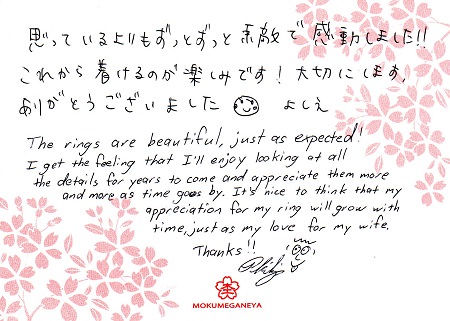 思っているよりもずっとずっと素敵で感動しました!!
これから着けるのが楽しみです！大切にします。
ありがとうございました よしえ
The rings are beautiful, just as expected!
I get the feeling that I'll enjoy looking at all
the details for years to come and appreciate them more
and more as time goes by. It's nice to think that my
appreciation for my ring will grow with
time, just as my love for my wife.
Thanks!!
MOKUMEGANEYA